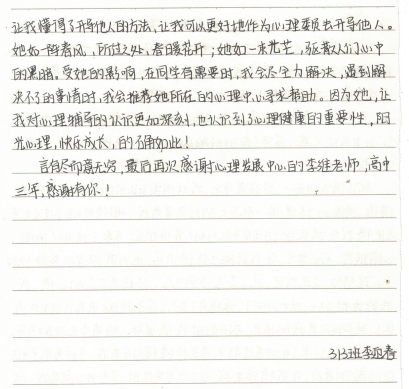 让我懂得了开导他人的方法,让我可以更好地作为心理委员去开导他人。
她如一阵春风,所过之处,春暖花开;她如一束光芒,驱散人们心中
的黑暗。受她的影响,在同学有需要时,我会尽全力解决,遇到解
决不了的事情时,我会推荐她所在的心理中心寻求帮助。因为她,让
我对心理辅导的认识更加深刻,也认识到了心理健康的重要性,阳
光心理,快乐成长,的确如此!
言有尽而意无穷,最后再次感谢心理发展中心的李维老师,高中
三年,感谢有你!
313班李